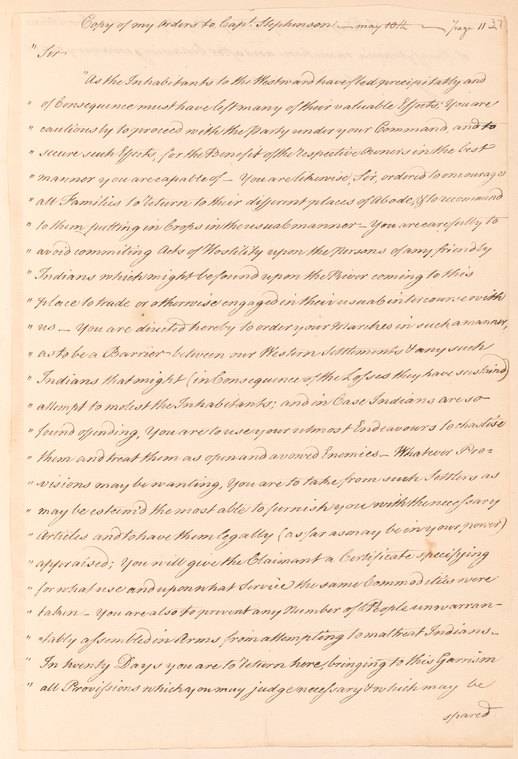 Copy of my Orders to Capt. Stephinson — may 10th — page 11 37
" Sir
"As the Inhabitants to the Westward have fled precipitably and
" of Consequence must have left many of their valuable Effects; You are
" cautiously to proceed with the Party under your Command, and to
" secure such Effects, for the Benefit of the respective Owners in the best
" manner you are capable of — You are likewise, Sir, ordered to encourage
" all Families to return to their different places of Abode, & to recommend
" to them putting in Crops in the usual manner — You are carefully to
" avoid commiting Acts of Hostility upon the Persons of any friendly
" Indians which might be found upon the River coming to this
" place to trade or otherwise engaged in their usual intercourse with
" us — You are directed hereby to order your Marches in such a manner,
" as to be a Barrier between our Western Settlements & any such
" Indians that might (in Consequence of the Losses they have sustaind)
" attempt to molest the Inhabitants; and in Case Indians are so
" found offending, You are to use your utmost Endeavours to chastise
" them and treat them as open and avowed Enemies — Whatever Pro-
" visions may be wanting, You are to take from such Settlers as
" may be esteemd the most able to furnish you with the necessary
" Articles and to have them legally (as far as may be in your power)
" appraised; You will give the Claimant a Certificate specifying
" for what use and upon what Service the same Commodities were
" taken — You are also to prevent any Number of People unwarran-
" tably assembled in Arms, from attempting to maltreat Indians —
" In twenty Days you are to return here, bringing to this Garrison
" all Provissions which you may judge necessary & which may be
spared